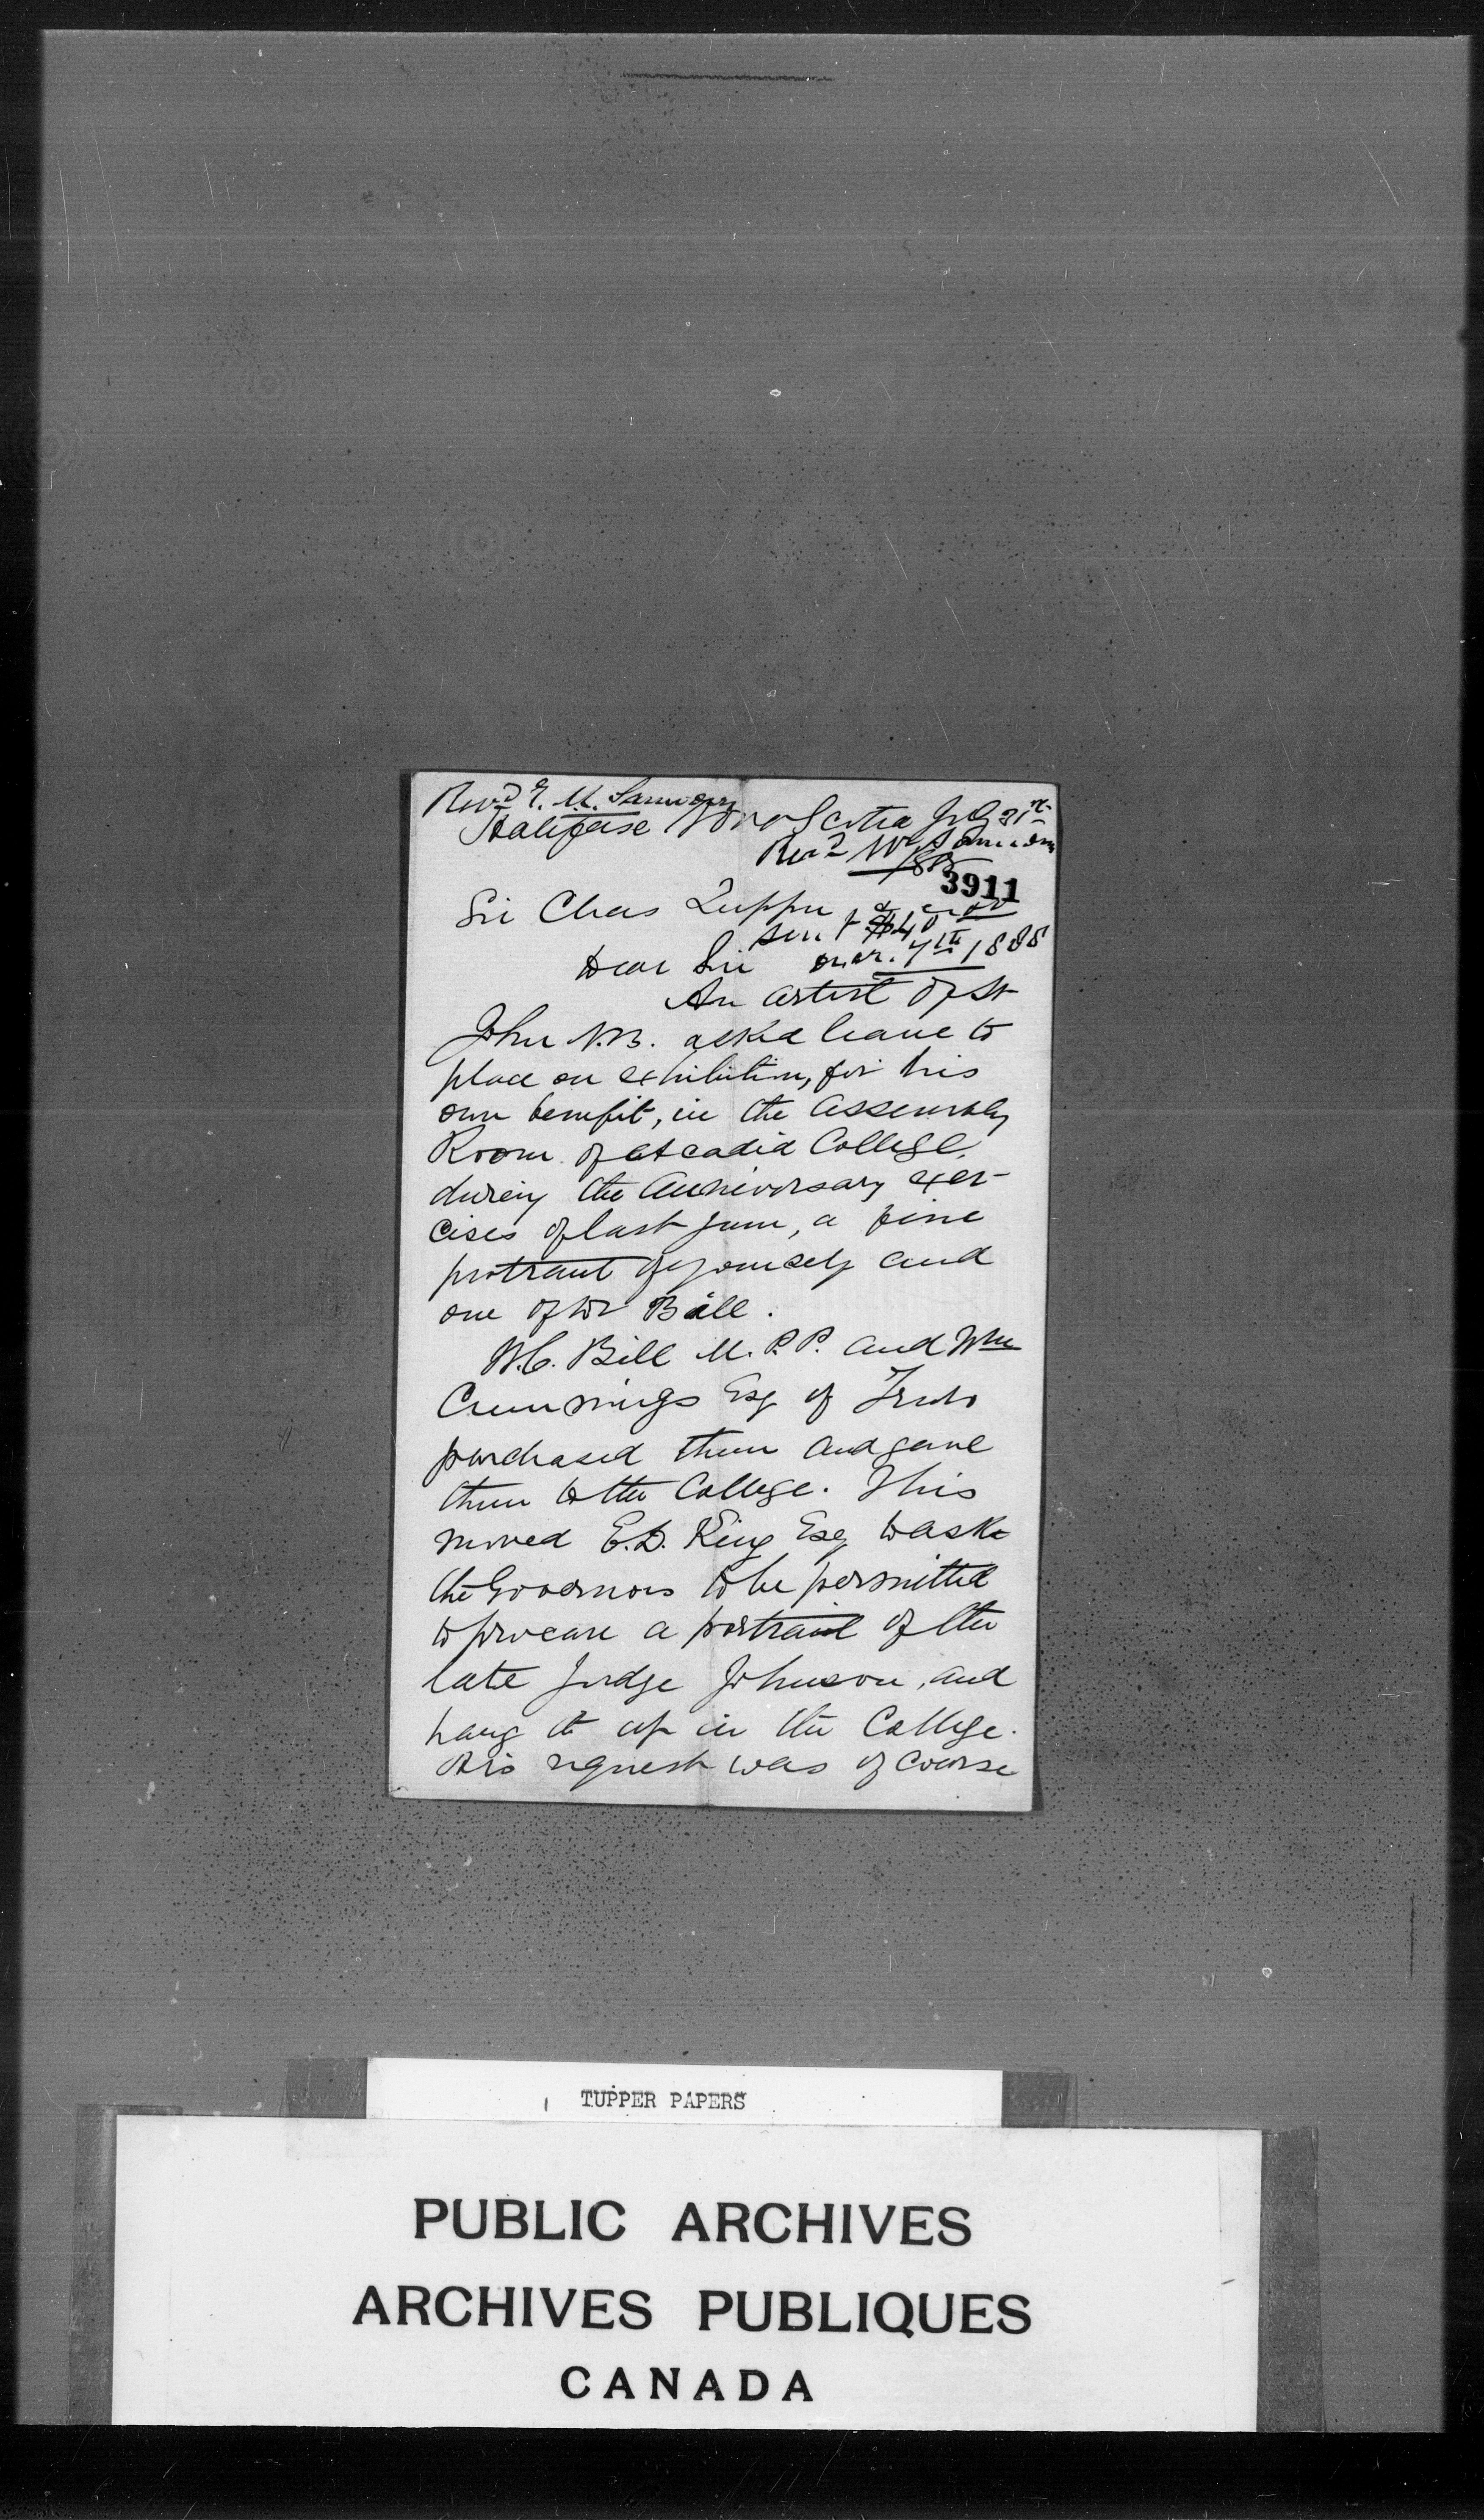 Revd E. M. Saunders
Halifax Nova Scotia
Revd Mr Saunders
3911
Sir Chas Tupper
sent $40
Dear Sir mar. 7th 1888
An artist of St
John N.B. asked leave to
place on exhibition, for his
own benefit, in the Assembly
Room of Acadia College,
during the Anniversary exer-
cises of last June, a fine
protrait of yourself and
one of Dr Bill.
W.C. Bill M.P.P. and Wm
Cummings Esq of Truro
purchased them and gave
them to the College. This
moved E.D. King Esq to ask
the Governors to be permitted
to procure a portrait of the
late Judge Johnson, and
hang it up in the College.
His request was of course
TUPPER PAPERS
PUBLIC ARCHIVES
ARCHIVES PUBLIQUES
CANADA